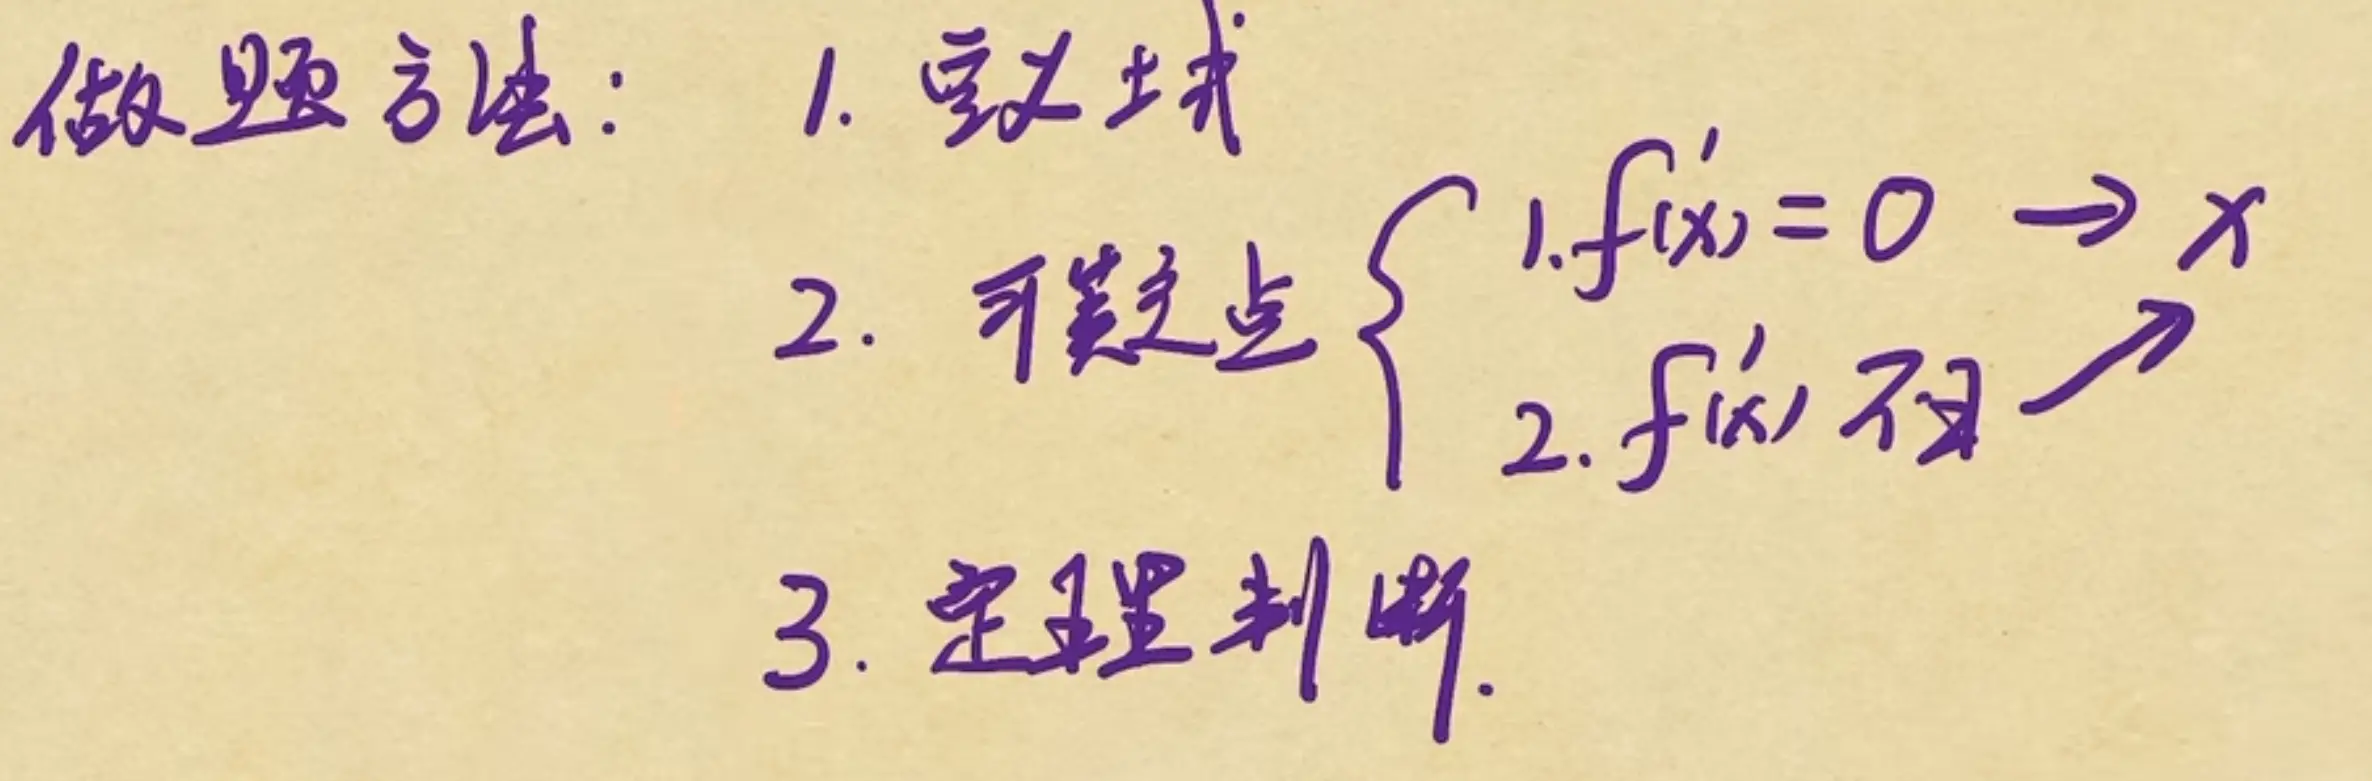 做题方法: 1. 定义域
2. 可疑点 { 1. f'(x) = 0 → x
2. f'(x) 不∃ ↗
3. 定理判断.